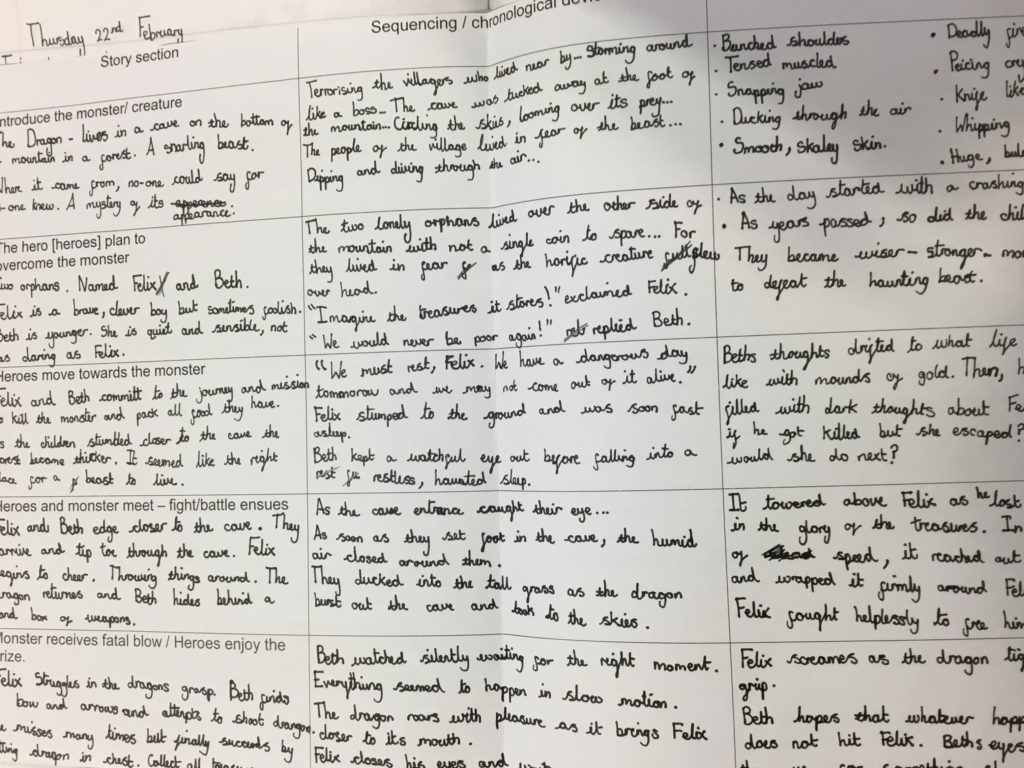 Thursday 22nd February
Story section
Sequencing / chronological
Introduce the monster/ creature
The Dragon - lives in a cave on the bottom of
mountain in a forest. A snarling beast.
Where it came from, no-one could say for
no-one knew. A mystery of its appearence
appearance.
Terrorising the villagers who lived near by... Storming around
like a boss... The cave was tucked away at the foot of
the mountain... Circling the skiis, looming over its prey...
The people of the village lived in fear of the beast...
Dipping and diving through the air...
• Bunched shoulders
• Tensed muscled
• Snapping jaw
• Ducking through the air
• Smooth, Skaley skin.
• Deadly
• Peicing
• Knife
• Whipping
• Huge,
The hero [heroes] plan to
overcome the monster
Two orphans. Named Felix and Beth.
Felix is a brave, clever boy but sometimes foolish.
Beth is younger. She is quiet and sensible, not
as daring as Felix.
The two lonely orphans lived over the other side of
the mountain with not a single coin to spare... For
they lived in fear as the horific creature flew
over head.
"Imagine the treasures it stores!" exclaimed Felix.
"We would never be poor again!" replied Beth.
• As the day started with a crashing
• As years passed, so did the
They became wiser - stronger -
to defeat the haunting beast.
Heroes move towards the monster
Felix and Beth committ to the journey and mission
to kill the monster and pack all food they have.
As the children stumbled closer to the cave the
forest became thicker. It seemed like the right
place for a beast to live.
"We must rest, Felix. We have a dangerous day
tomorrow and we may not come out of it alive."
Felix stumped to the ground and was soon fast
asleep.
Beth kept a watchful eye out before falling into a
rest restless, haunted sleep.
Beths thoughts drifted to what life
like with mounds of gold. Then,
filled with dark thoughts about
if he got killed but she escaped?
would she do next?
Heroes and monster meet – fight/battle ensues
Felix and Beth edge closer to the cave. They
arrive and tip toe through the cave. Felix
begins to cheer. Throwing things around. The
dragon returnes and Beth hides behind a
and box of weapons.
As the cave entrance caught their eye...
As soon as they set foot in the cave, the humid
air closed around them.
They ducked into the tall grass as the dragon
burst out the cave and took to the skies.
It towered above Felix as he lost
in the glory of the treasures. In
of speed, it reached out
and wrapped it firmly around
Felix fought helplessly to free
Monster receives fatal blow / Heroes enjoy the
prize.
Felix Struggles in the dragons grasp. Beth finds
bow and arrows and attempts to shoot dragon.
misses many times but finally succeeds by
dragon in chest. Collect all
Beth watched silently waiting for the right moment.
Everything seemed to happen in slow motion.
The dragon roars with pleasure as it brings Felix
closer to its mouth.
Felix closes his eyes and
Felix screames as the dragon
grip.
Beth hopes that whatever
does not hit Felix. Beths eyes